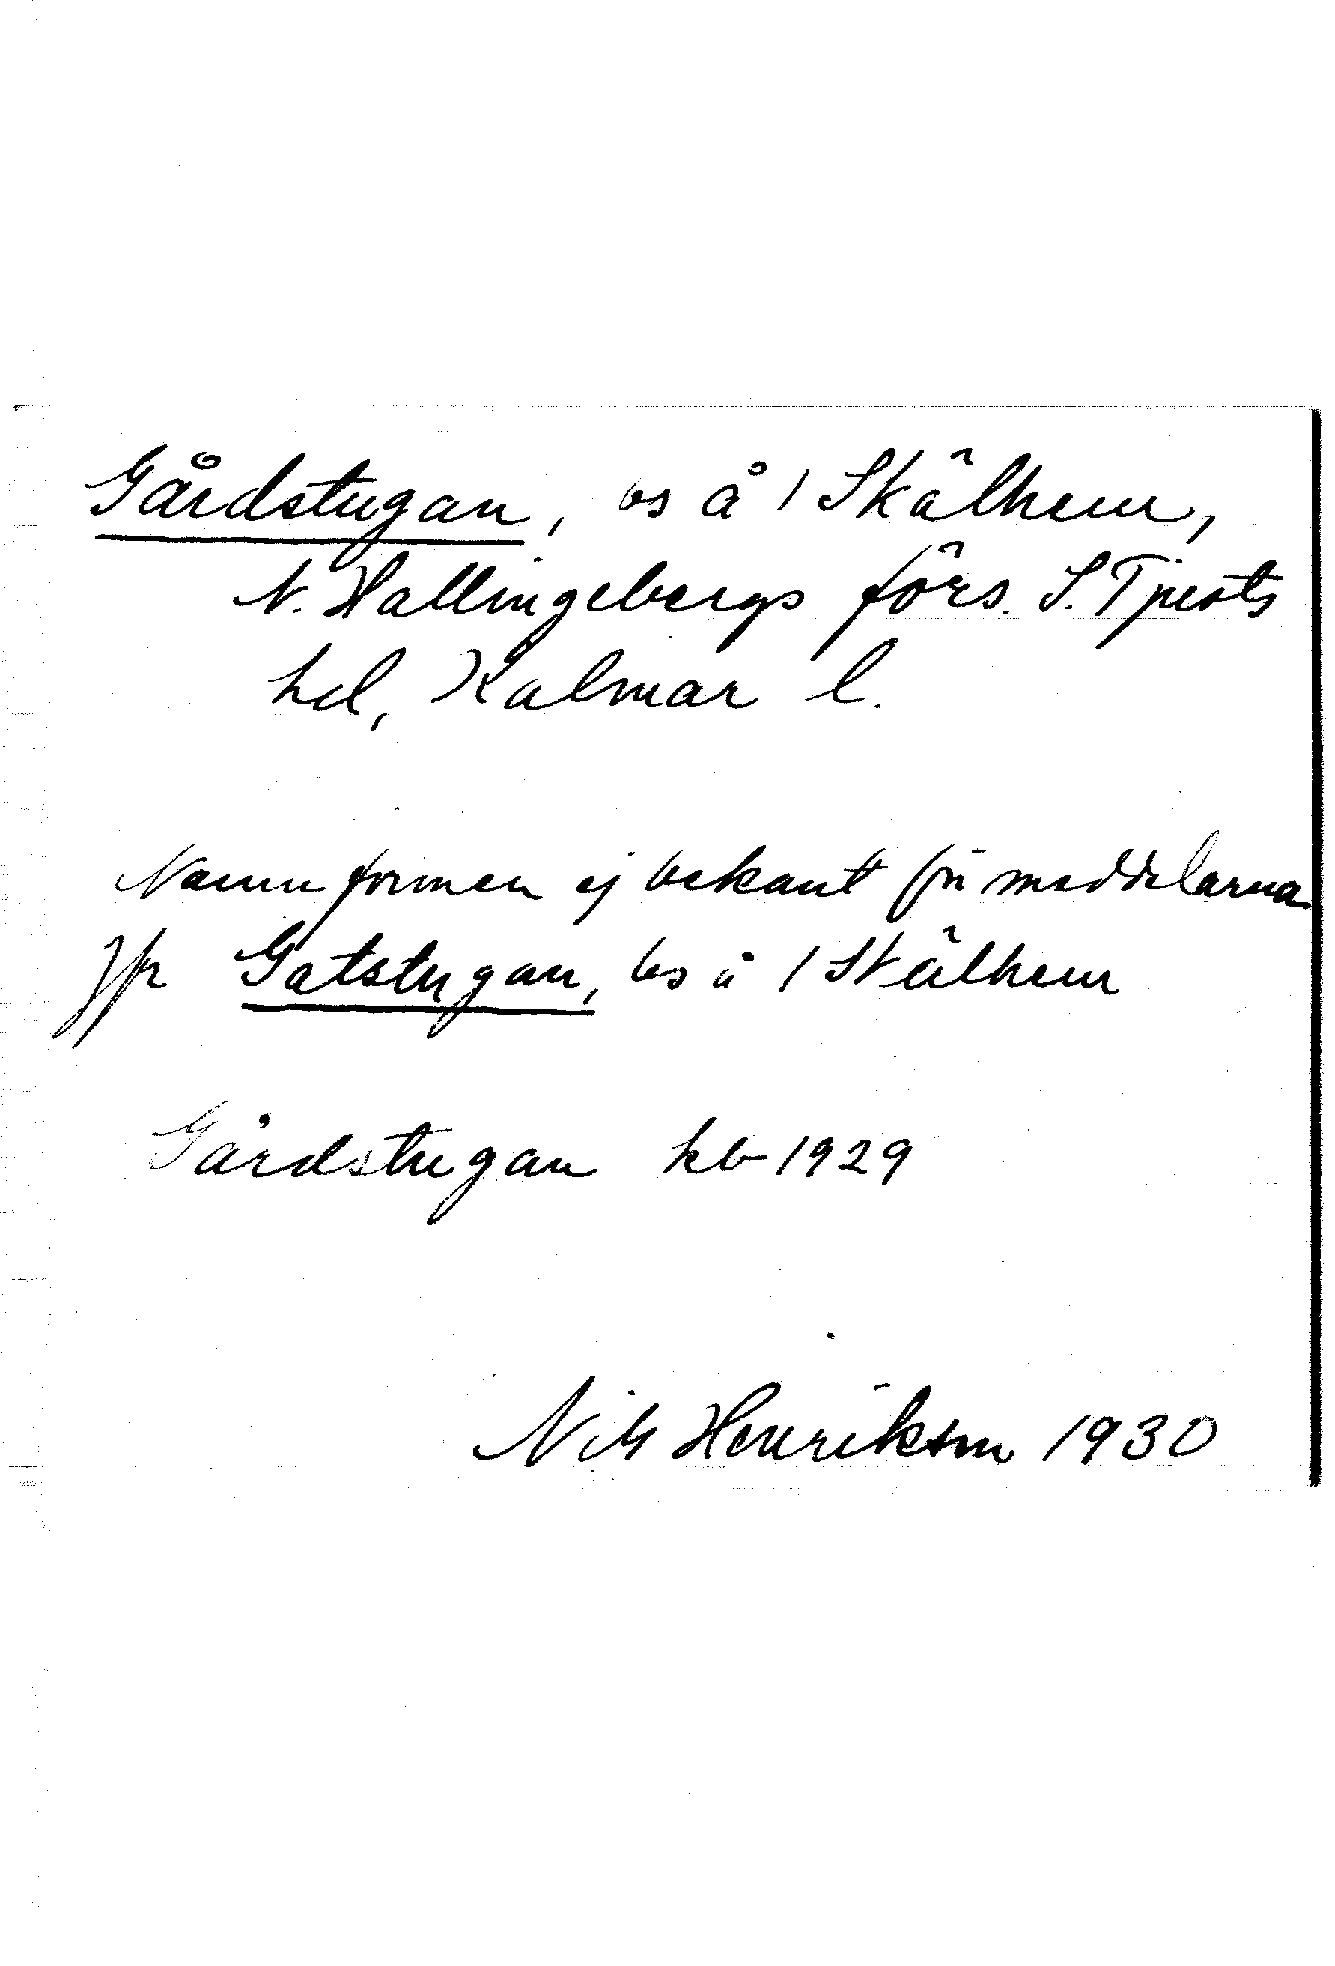 Gårdstugan, bs å 1 Skälhem,
N. Hallingebergs förs. S. Tjusts
hd, Kalmar l.
Namnformen ej bekant för meddelarna
Jfr Gatstugan, bs å 1 Skälhem
Gårdstugan kb 1929
Nils Henrikson 1930